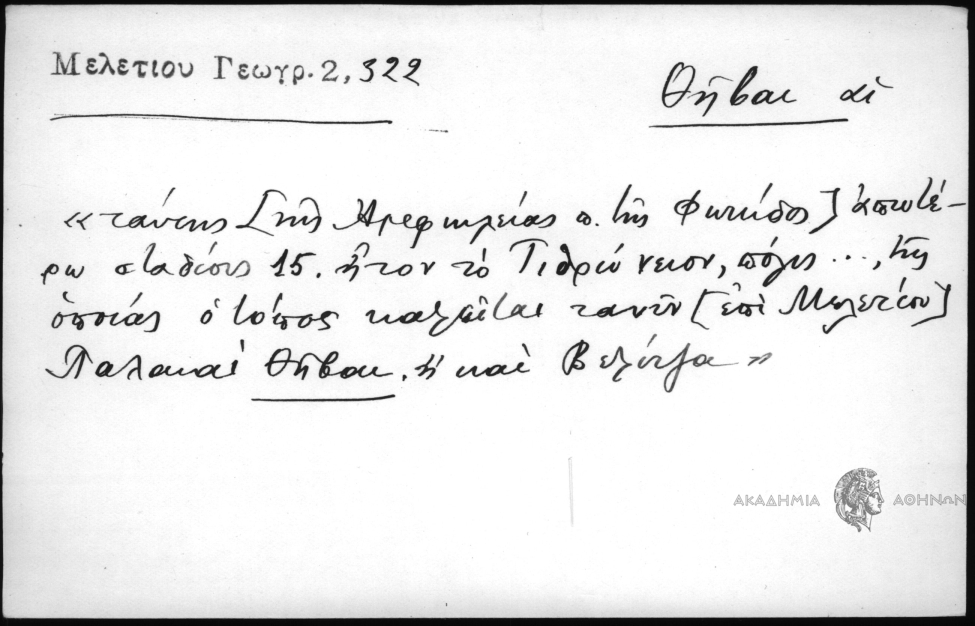 Μελετιου Γεωγρ. 2, 322
Θῆβαι αἱ
«ταύτης [τῆς Ἀμφικλείας π. τῆς Φωκίδος] ἀπωτέ-
ρω σταδίους 15. ἦτον τὸ Τιθρώνειον, πόλις ..., τῆς
ὁποίας ὁ τόπος καλεῖται τανῦν [ἐπὶ Μελετίου]
Παλαιαὶ Θῆβαι, ἢ καὶ Βελίτζα»
ΑΚΑΔΗΜΙΑ ΑΘΗΝΩΝ